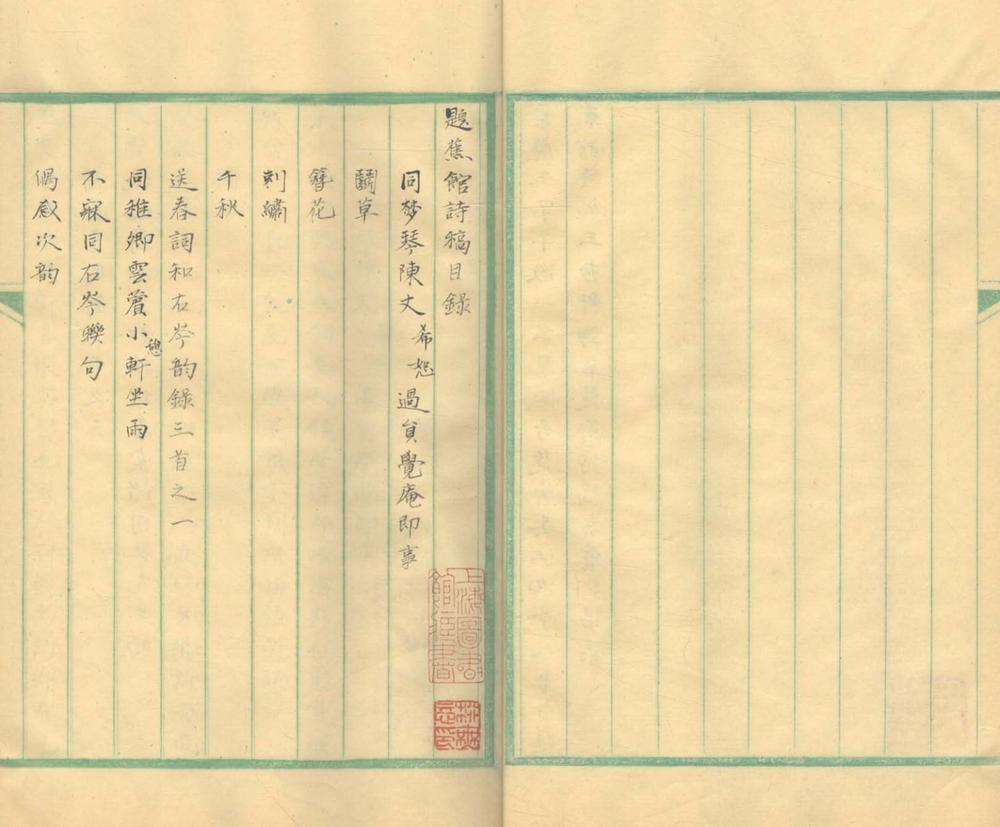 題蕉館詩稿目錄
同夢琴陳丈希恕過貟覺庵即事
鬭草
簪花
刺繡
千秋
送春詞和右岑韵錄三首之一
同稚卿雲簷小憩軒坐雨
不寐同右岑聯句
偶感次韵
上海圖書館藏書